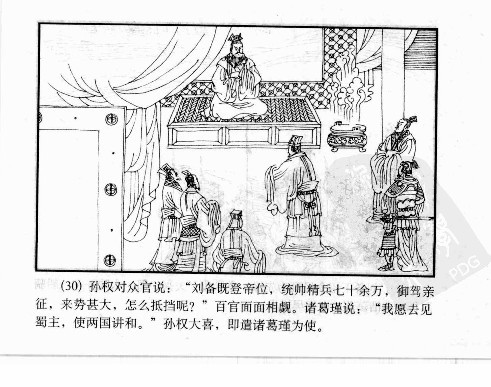 (30) 孙权对众官说：“刘备既登帝位，统帅精兵七十余万，御驾亲
征，来势甚大，怎么抵挡呢？”百官面面相觑。诸葛瑾说：“我愿去见
蜀主，使两国讲和。”孙权大喜，即遣诸葛瑾为使。
PDG